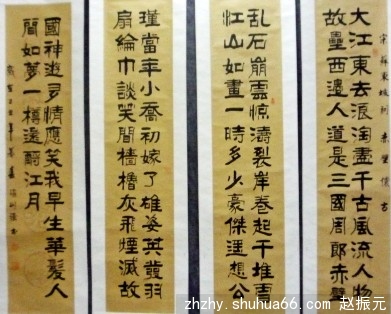 宋蘇東坡詞赤壁懷古
大江東去浪淘盡千古風流人物
故壘西邊人道是三國周郎赤壁
乱石崩雲惊濤裂岸卷起千堆雪
江山如畫一時多少豪傑遥想公
瑾當年小喬初嫁了雄姿英發羽
扇綸巾談笑間檣櫓灰飛煙滅故
國神遊多情應笑我早生華髮人
間如夢一樽還酹江月
zhzhy.shuhua66.com 赵振元